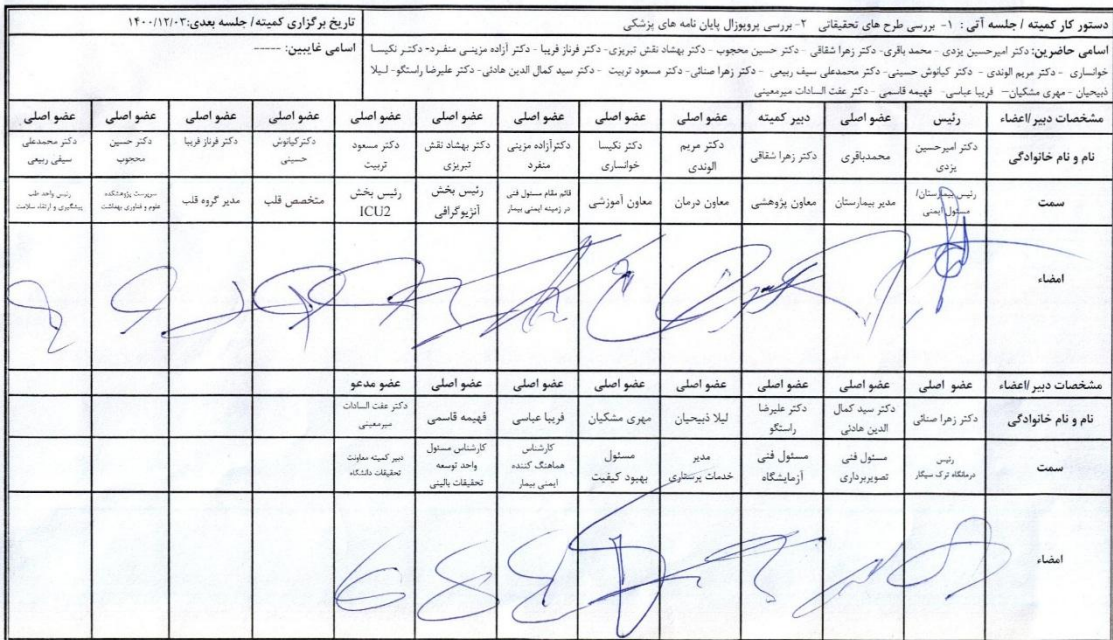 دستور کار کمیته / جلسه آتی : ۱- بررسی طرح های تحقیقاتی ۲- بررسی پروپوزال پایان نامه های پزشکی
تاریخ برگزاری کمیته/ جلسه بعدی:۱۴۰۰/۱۲/۰۳
اسامی حاضرین: دکتر امیرحسین یزدی - محمد باقری- دکتر زهرا شقاقی - دکتر حسین محجوب - دکتر بهشاد نقش تبریزی- دکتر فرناز فریبا - دکتر آزاده مزینی منفرد- دکتر نکیسا
خوانساری - دکتر مریم الوندی - دکتر کیانوش حسینی- دکتر محمدعلی سیف ربیعی - دکتر زهرا صنائی- دکتر مسعود تربیت - دکتر سید کمال الدین هادئی- دکتر علیرضا راستگو- لیلا
ذبیحیان - مهری مشکیان– فریبا عباسی- فهیمه قاسمی - دکتر عفت السادات میرمعینی
اسامی غایبین: ------
مشخصات دبیر/اعضاء رئیس عضو اصلی دبیر کمیته عضو اصلی عضو اصلی عضو اصلی عضو اصلی عضو اصلی عضو اصلی عضو اصلی عضو اصلی عضو اصلی
نام و نام خانوادگی دکتر امیرحسین یزدی محمدباقری دکتر زهرا شقاقی دکتر مریم الوندی دکتر نکیسا خوانساری دکترآزاده مزینی منفرد دکتر بهشاد نقش تبریزی دکتر مسعود تربیت دکترکیانوش حسینی دکتر فرناز فریبا دکتر حسین محجوب دکتر محمدعلی سیفی ربیعی
سمت رئیس بیمارستان/ مسئول ایمنی مدیر بیمارستان معاون پژوهشی معاون درمان معاون آموزشی قائم مقام مسئول فنی در زمینه ایمنی بیمار رئیس بخش آنژیوگرافی رئیس بخش ICU2 متخصص قلب مدیر گروه قلب سرپرست پژوهشکده علوم و فناوری بهداشت رئیس واحد طب پیشگیری و ارتقاء سلامت
امضاء
مشخصات دبیر/اعضاء عضو اصلی عضو اصلی عضو اصلی عضو اصلی عضو اصلی عضو اصلی عضو اصلی عضو مدعو
نام و نام خانوادگی دکتر زهرا صنائی دکتر سید کمال الدین هادئی دکتر علیرضا راستگو لیلا ذبیحیان مهری مشکیان فریبا عباسی فهیمه قاسمی دکتر عفت السادات میرمعینی
سمت رئیس درمانگاه ترک سیگار مسئول فنی تصویربرداری مسئول فنی آزمایشگاه مدیر خدمات پرستاری مسئول بهبود کیفیت کارشناس هماهنگ کننده ایمنی بیمار کارشناس مسئول واحد توسعه تحقیقات بالینی دبیر کمیته معاونت تحقیقات دانشگاه
امضاء